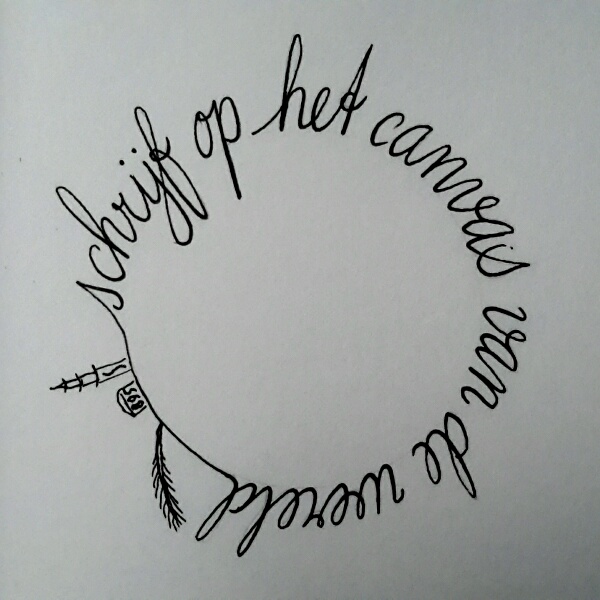 schrijf op het canvas van de wereld